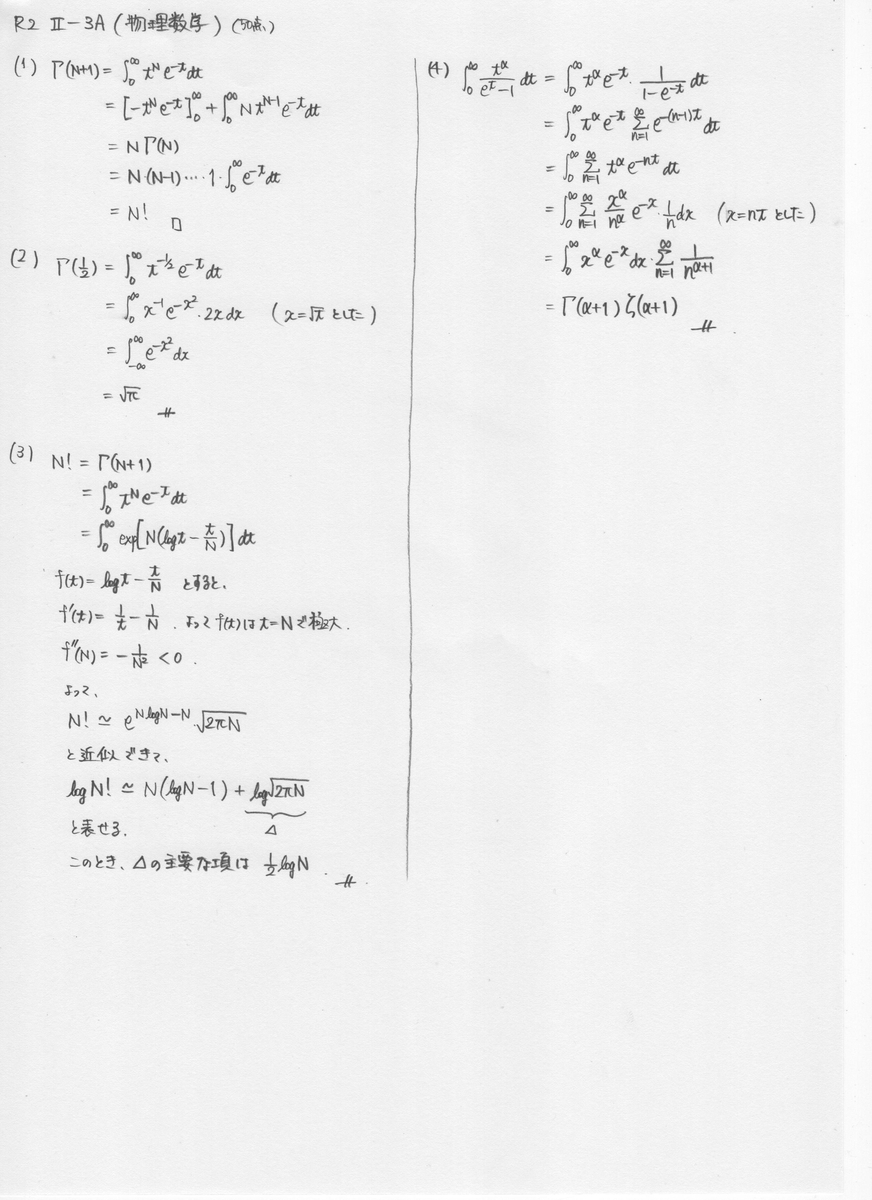 R2 Ⅱ-3A (物理数学) (50点)
(1) Γ(N+1) = ∫₀^∞ t^N e^{-t} dt
= [-t^N e^{-t}]₀^∞ + ∫₀^∞ N t^{N-1} e^{-t} dt
= N Γ(N)
= N·(N-1)·····1·∫₀^∞ e^{-t} dt
= N! □
(2) Γ(1/2) = ∫₀^∞ t^{-1/2} e^{-t} dt
= ∫₀^∞ x^{-1} e^{-x²}·2x dx (x=√t とした)
= ∫_{-∞}^∞ e^{-x²} dx
= √π
(3) N! = Γ(N+1)
= ∫₀^∞ t^N e^{-t} dt
= ∫₀^∞ exp[N(log t - t/N)] dt
f(t) = log t - t/N とすると、
f'(t) = 1/t - 1/N . よって f(t)は t=N で極大.
f''(N) = -1/N² < 0 .
よって、
N! ≃ e^{N log N - N} √(2πN)
と近似できて、
log N! ≃ N(log N - 1) + log√(2πN)
Δ
と表せる.
このとき、Δの主要な項は 1/2 log N .
(4) ∫₀^∞ t^α/(e^t - 1) dt = ∫₀^∞ t^α e^{-t}· 1/(1-e^{-t}) dt
= ∫₀^∞ t^α e^{-t} Σ_{n=1}^∞ e^{-(n-1)t} dt
= ∫₀^∞ Σ_{n=1}^∞ t^α e^{-nt} dt
= ∫₀^∞ Σ_{n=1}^∞ x^α/n^α e^{-x}· 1/n dx (x=nt とした)
= ∫₀^∞ x^α e^{-x} dx· Σ_{n=1}^∞ 1/n^{α+1}
= Γ(α+1) ζ(α+1)